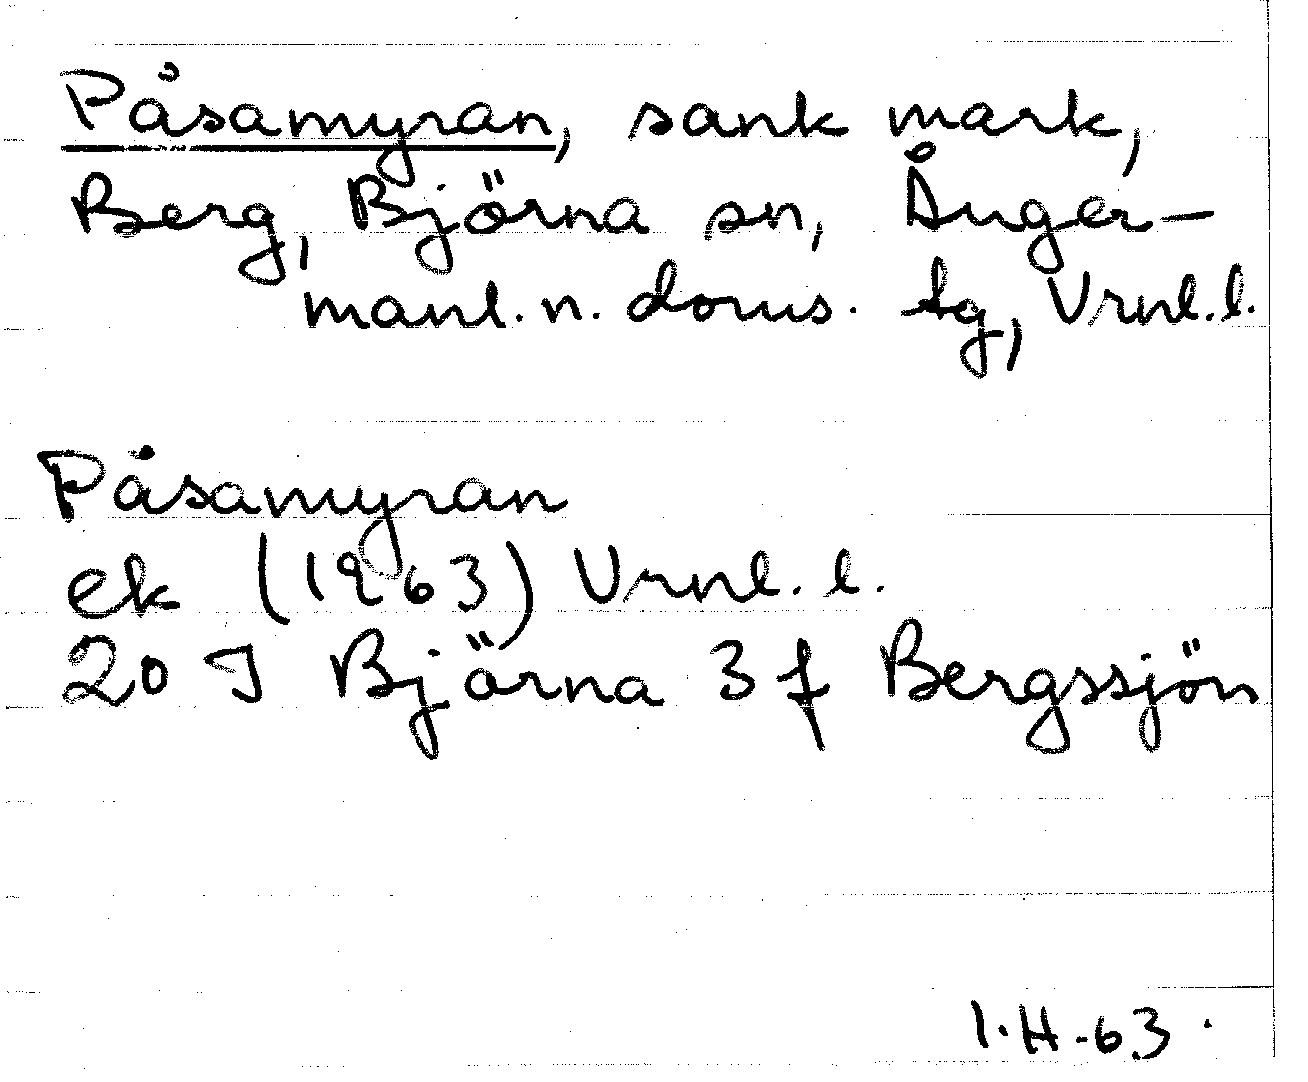 Påsamyran, sank mark,
Berg, Björna sn, Ånger-
manl. n. doms. tg, Vrnl. l.
Påsamyran
ek (1963) Vrnl. l.
20 J Björna 3 f Bergssjön
I.H-63.